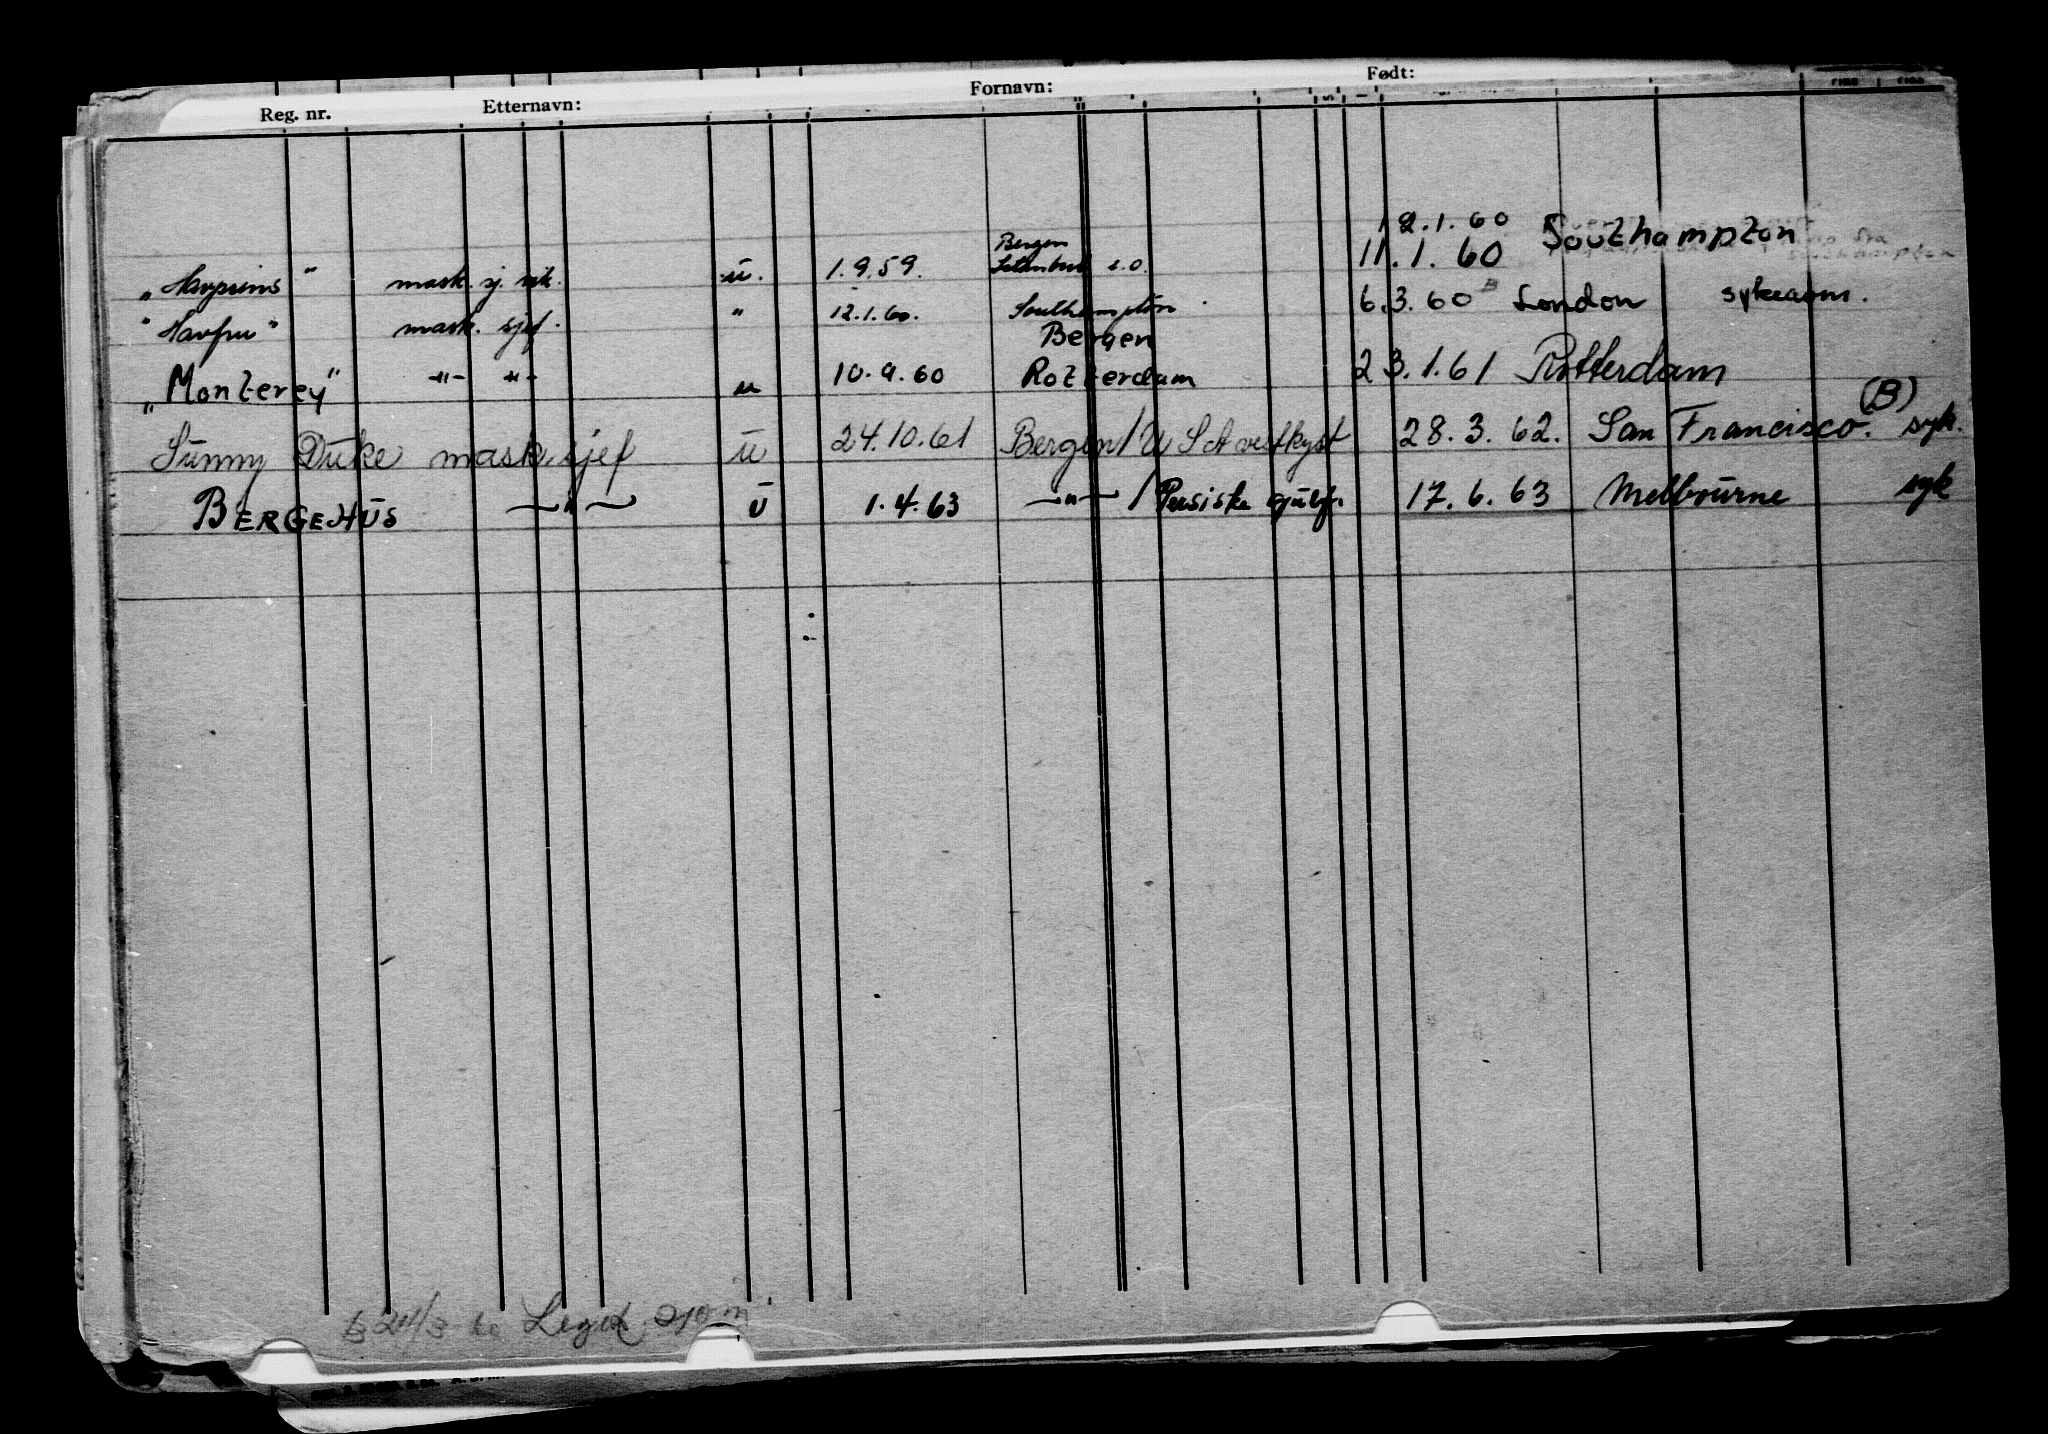 Reg. nr. Etternavn: Fornavn: Født:
12.1.60 Southampton
„Havprins" mask. sj. vik. u. 1.9.59. Bergen Istanbul e.o. 11.1.60
"Havfru" mask. sjef. " 12.1.60. Southampton 6.3.60 London sykeavm.
„Monterey" -"- -"- u 10.9.60 Bergen Rotterdam 23.1.61 Rotterdam
Sunny Duke mask sjef u 24.10.61 Bergen/USA vestkyst 28.3.62. San Francisco. (B) syk.
BERGEHUS —"— u 1.4.63 —"— / Persiske gulf. 17.6.63 Melbourne syk